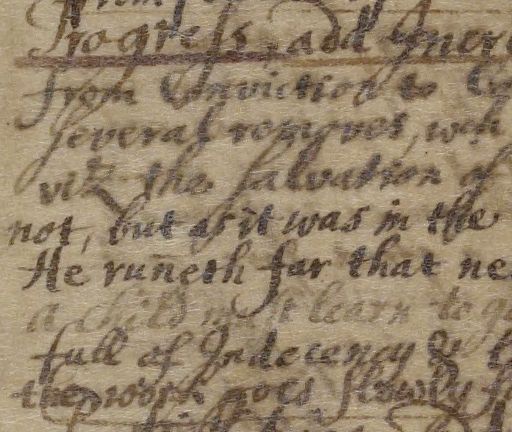 Progress, add Incre
from Conviction to Co
several removes, wch
vizt the salvation of
not, but as it was in the
He runeth far that ne
a child must learn to go
full of Indecency &
the work goes slowly